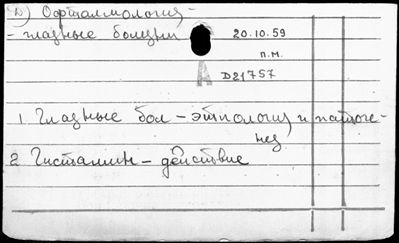 D) Офталмология -
- глазные болезни
20.10.59
п.м.
A D21757
1. Глазные бол - этиология и патоге-
нез
2 Гистамин - действие